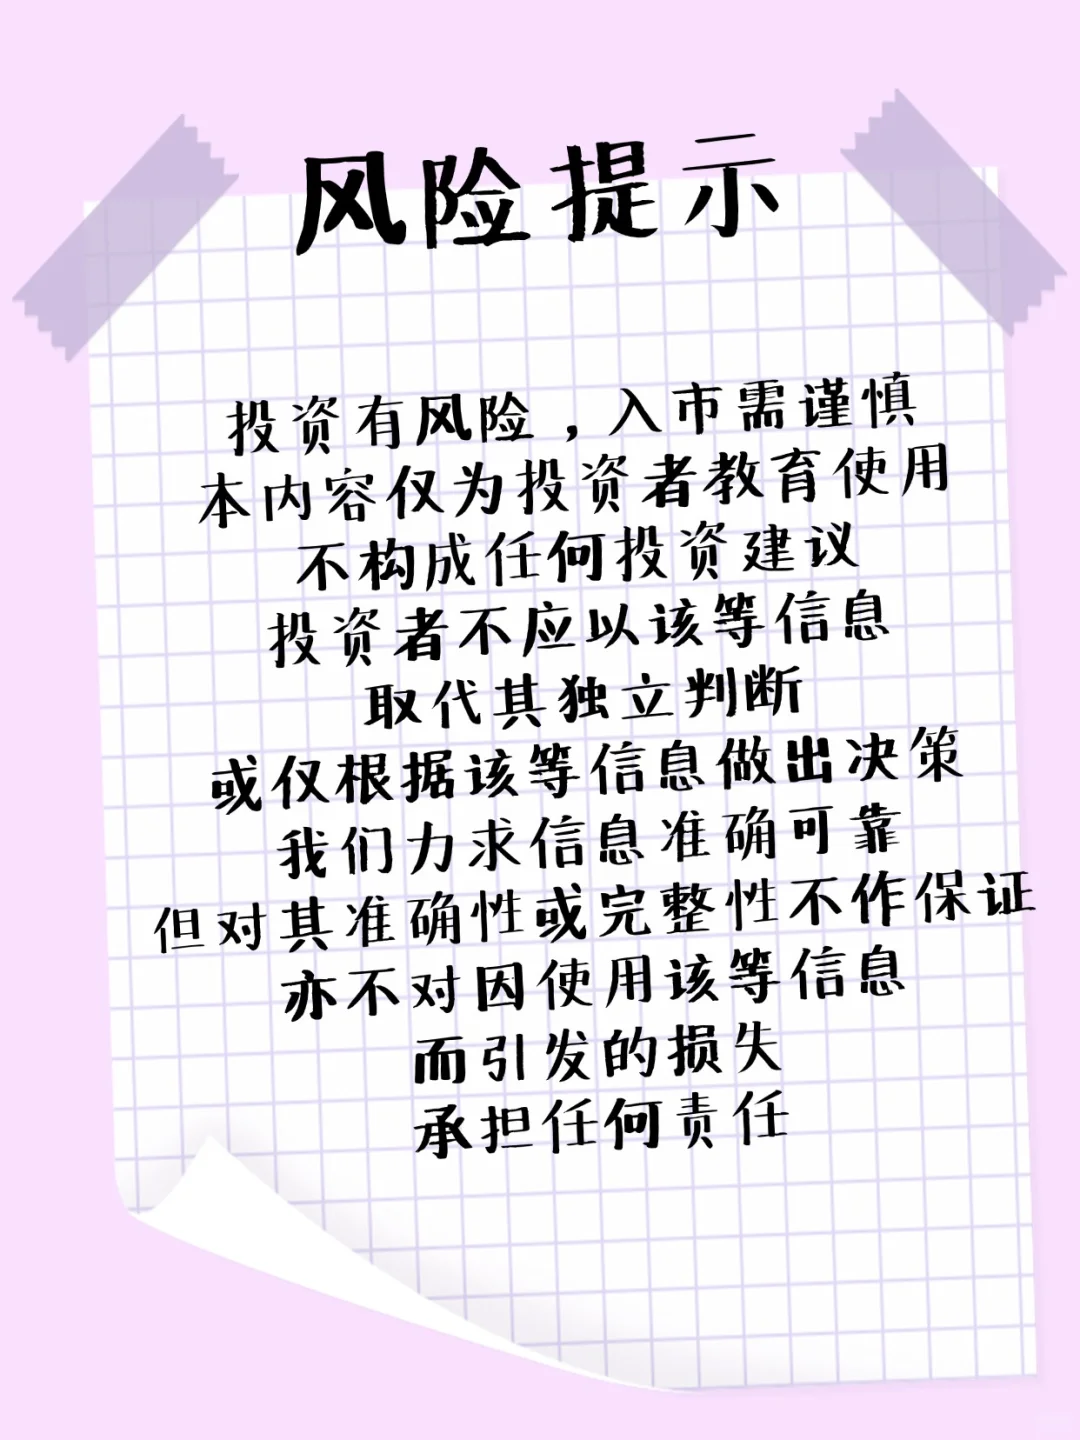 风险提示
投资有风险，入市需谨慎
本内容仅为投资者教育使用
不构成任何投资建议
投资者不应以该等信息
取代其独立判断
或仅根据该等信息做出决策
我们力求信息准确可靠
但对其准确性或完整性不作保证
亦不对因使用该等信息
而引发的损失
承担任何责任